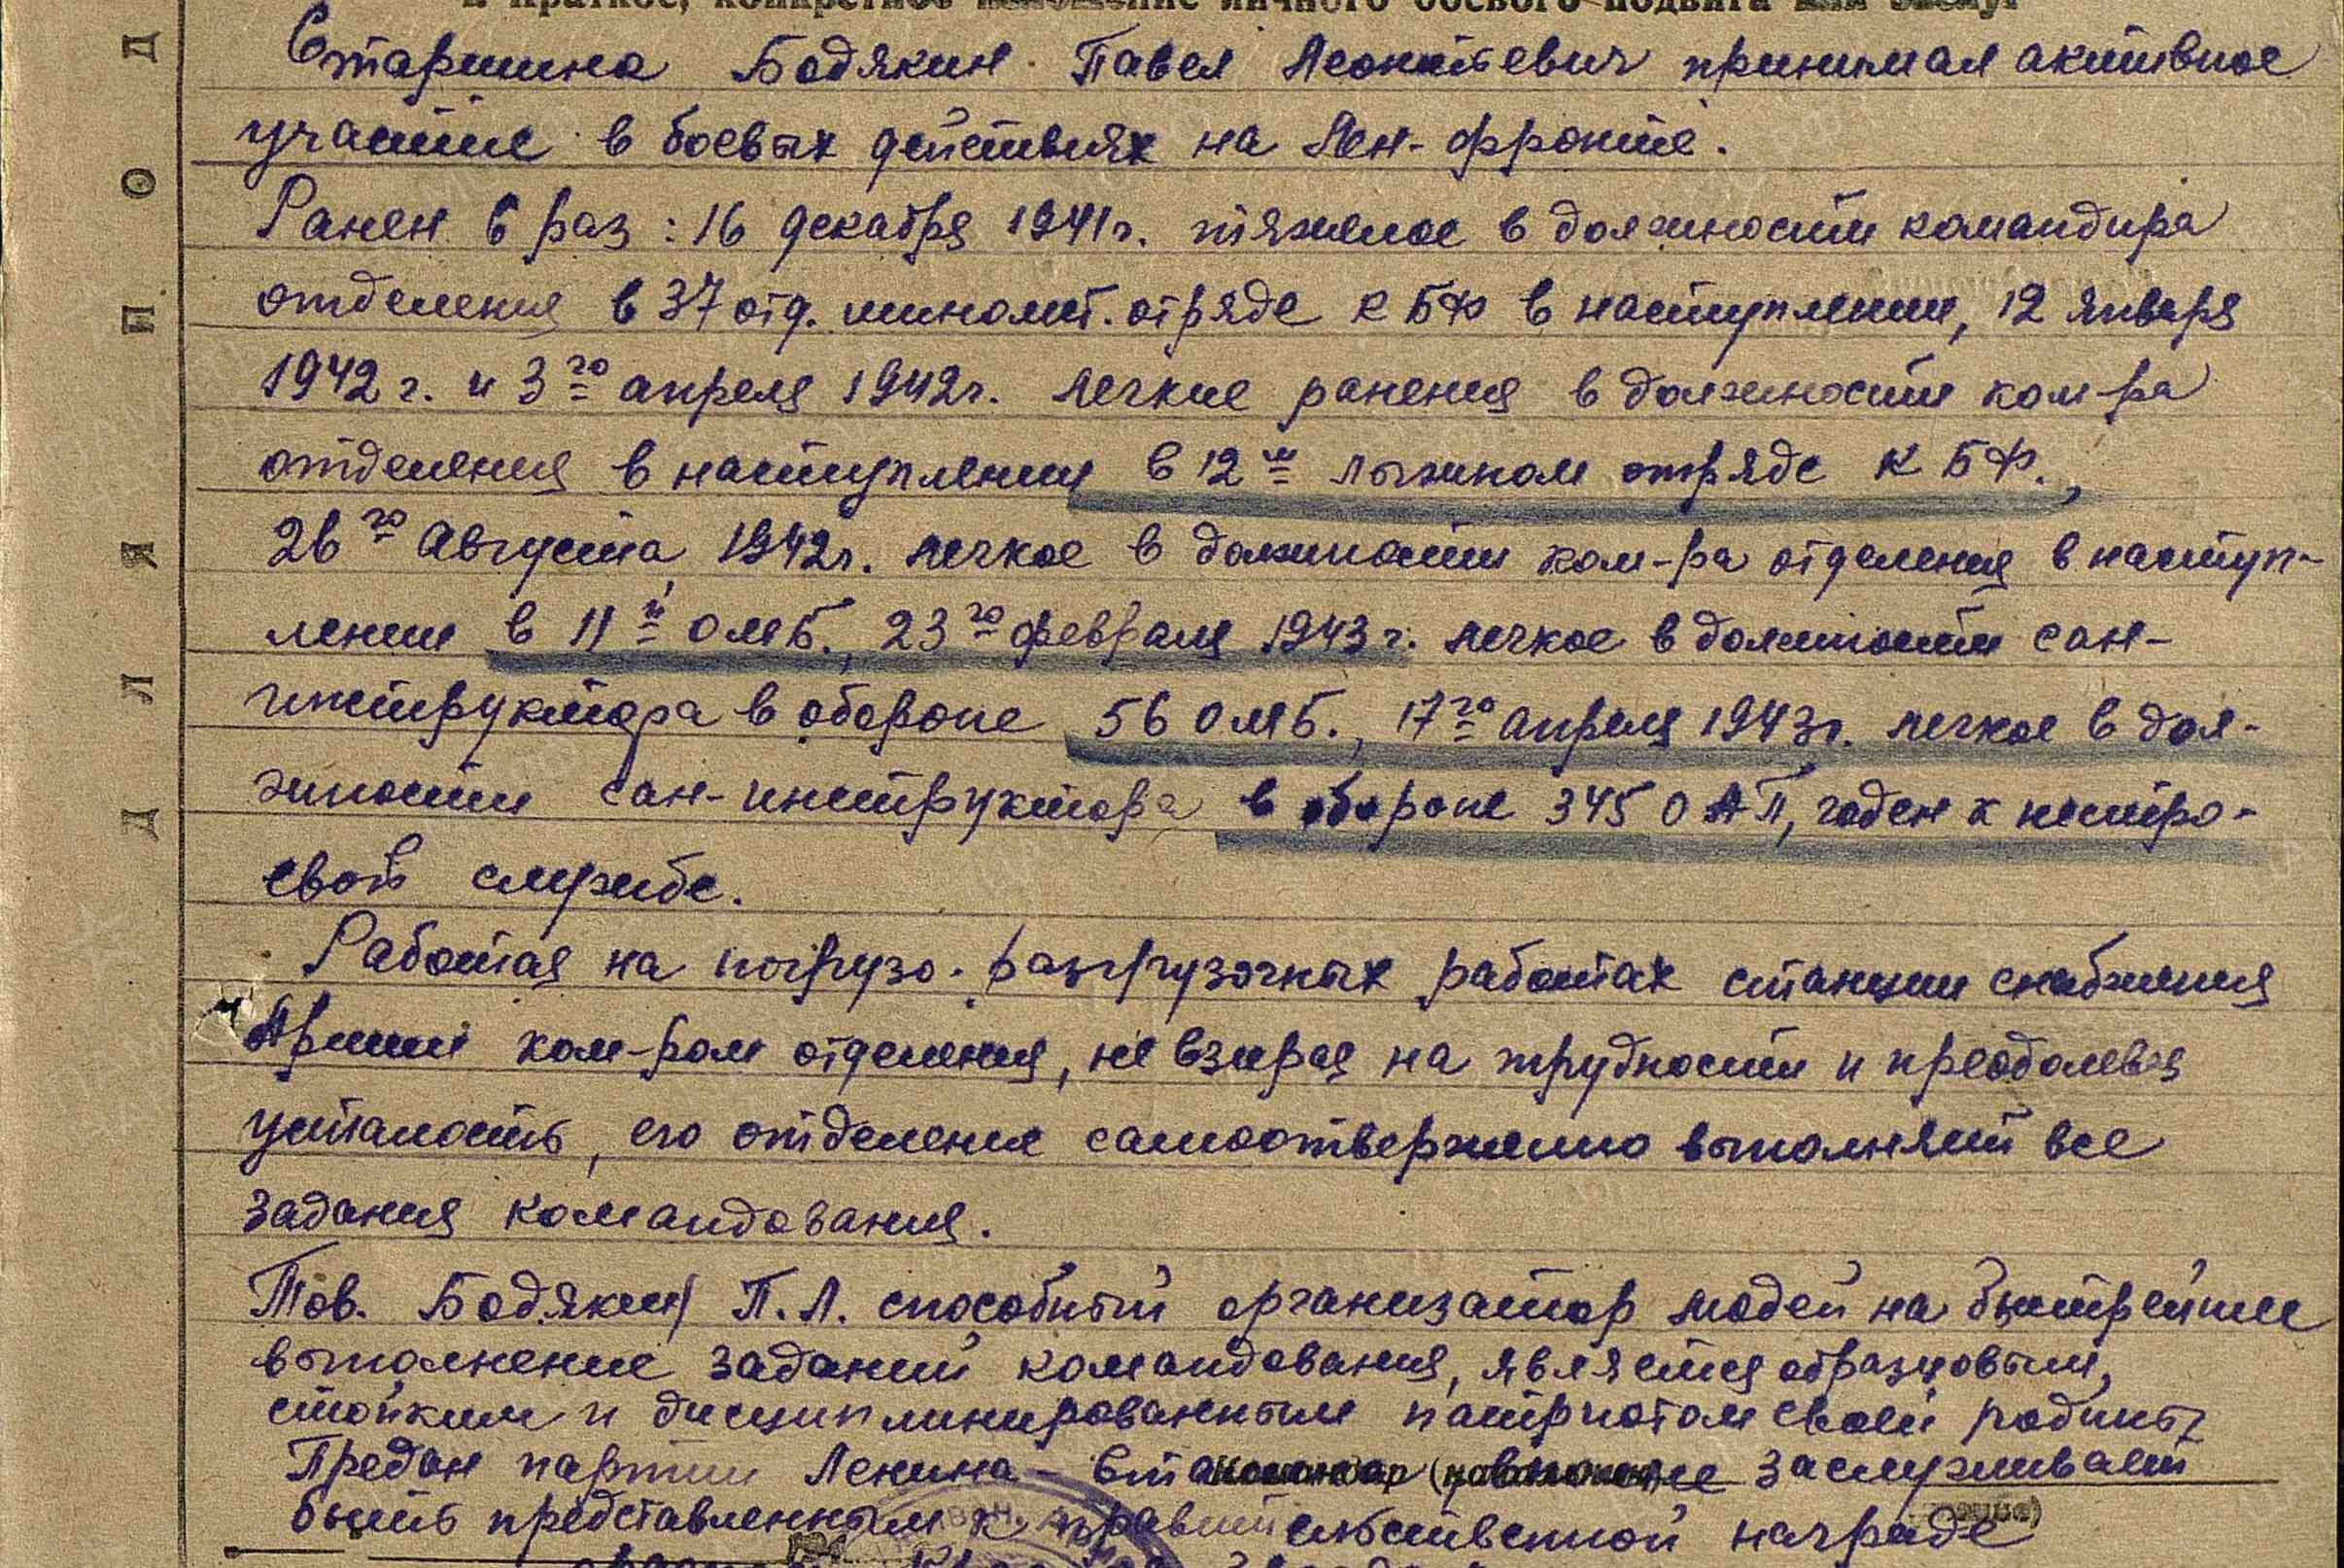 и краткое, конкретное изложение личного боевого подвига или заслуг
Старшина Бодякин Павел Леонтьевич принимал активное
участие в боевых действиях на Лен-фронте.
Ранен 6 раз: 16 декабря 1941г. тяжелое в должности командира
отделения в 37 отд. миномет. отряде КБФ в наступлении, 12 января
1942 г. и 3го апреля 1942г. легкие ранения в должности ком-ра
отделения в наступлении в 12м лыжном отряде КБФ.,
26го Августа 1942г. легкое в должности ком-ра отделения в наступ-
лении в 11й ОМБ., 23го февраля 1943г. легкое в должности сан-
инструктора в обороне 56 ОМБ., 17го апреля 1943г. легкое в дол-
жности сан-инструктора в обороне 345 ОАП, годен к нестро-
евой службе.
Работая на погрузо-разгрузочных работах станции снабжения
Армии ком-ром отделения, не взирая на трудности и преодолевая
усталость, его отделение самоотверженно выполняет все
задания командования.
Тов. Бодякин П.Л. способный организатор людей на быстрейшее
выполнение заданий командования, является образцовым,
стойким и дисциплинированным патриотом своей родины
Предан партии Ленина заслуживает
быть представленным к правительственной награде
ДЛЯ ПОД